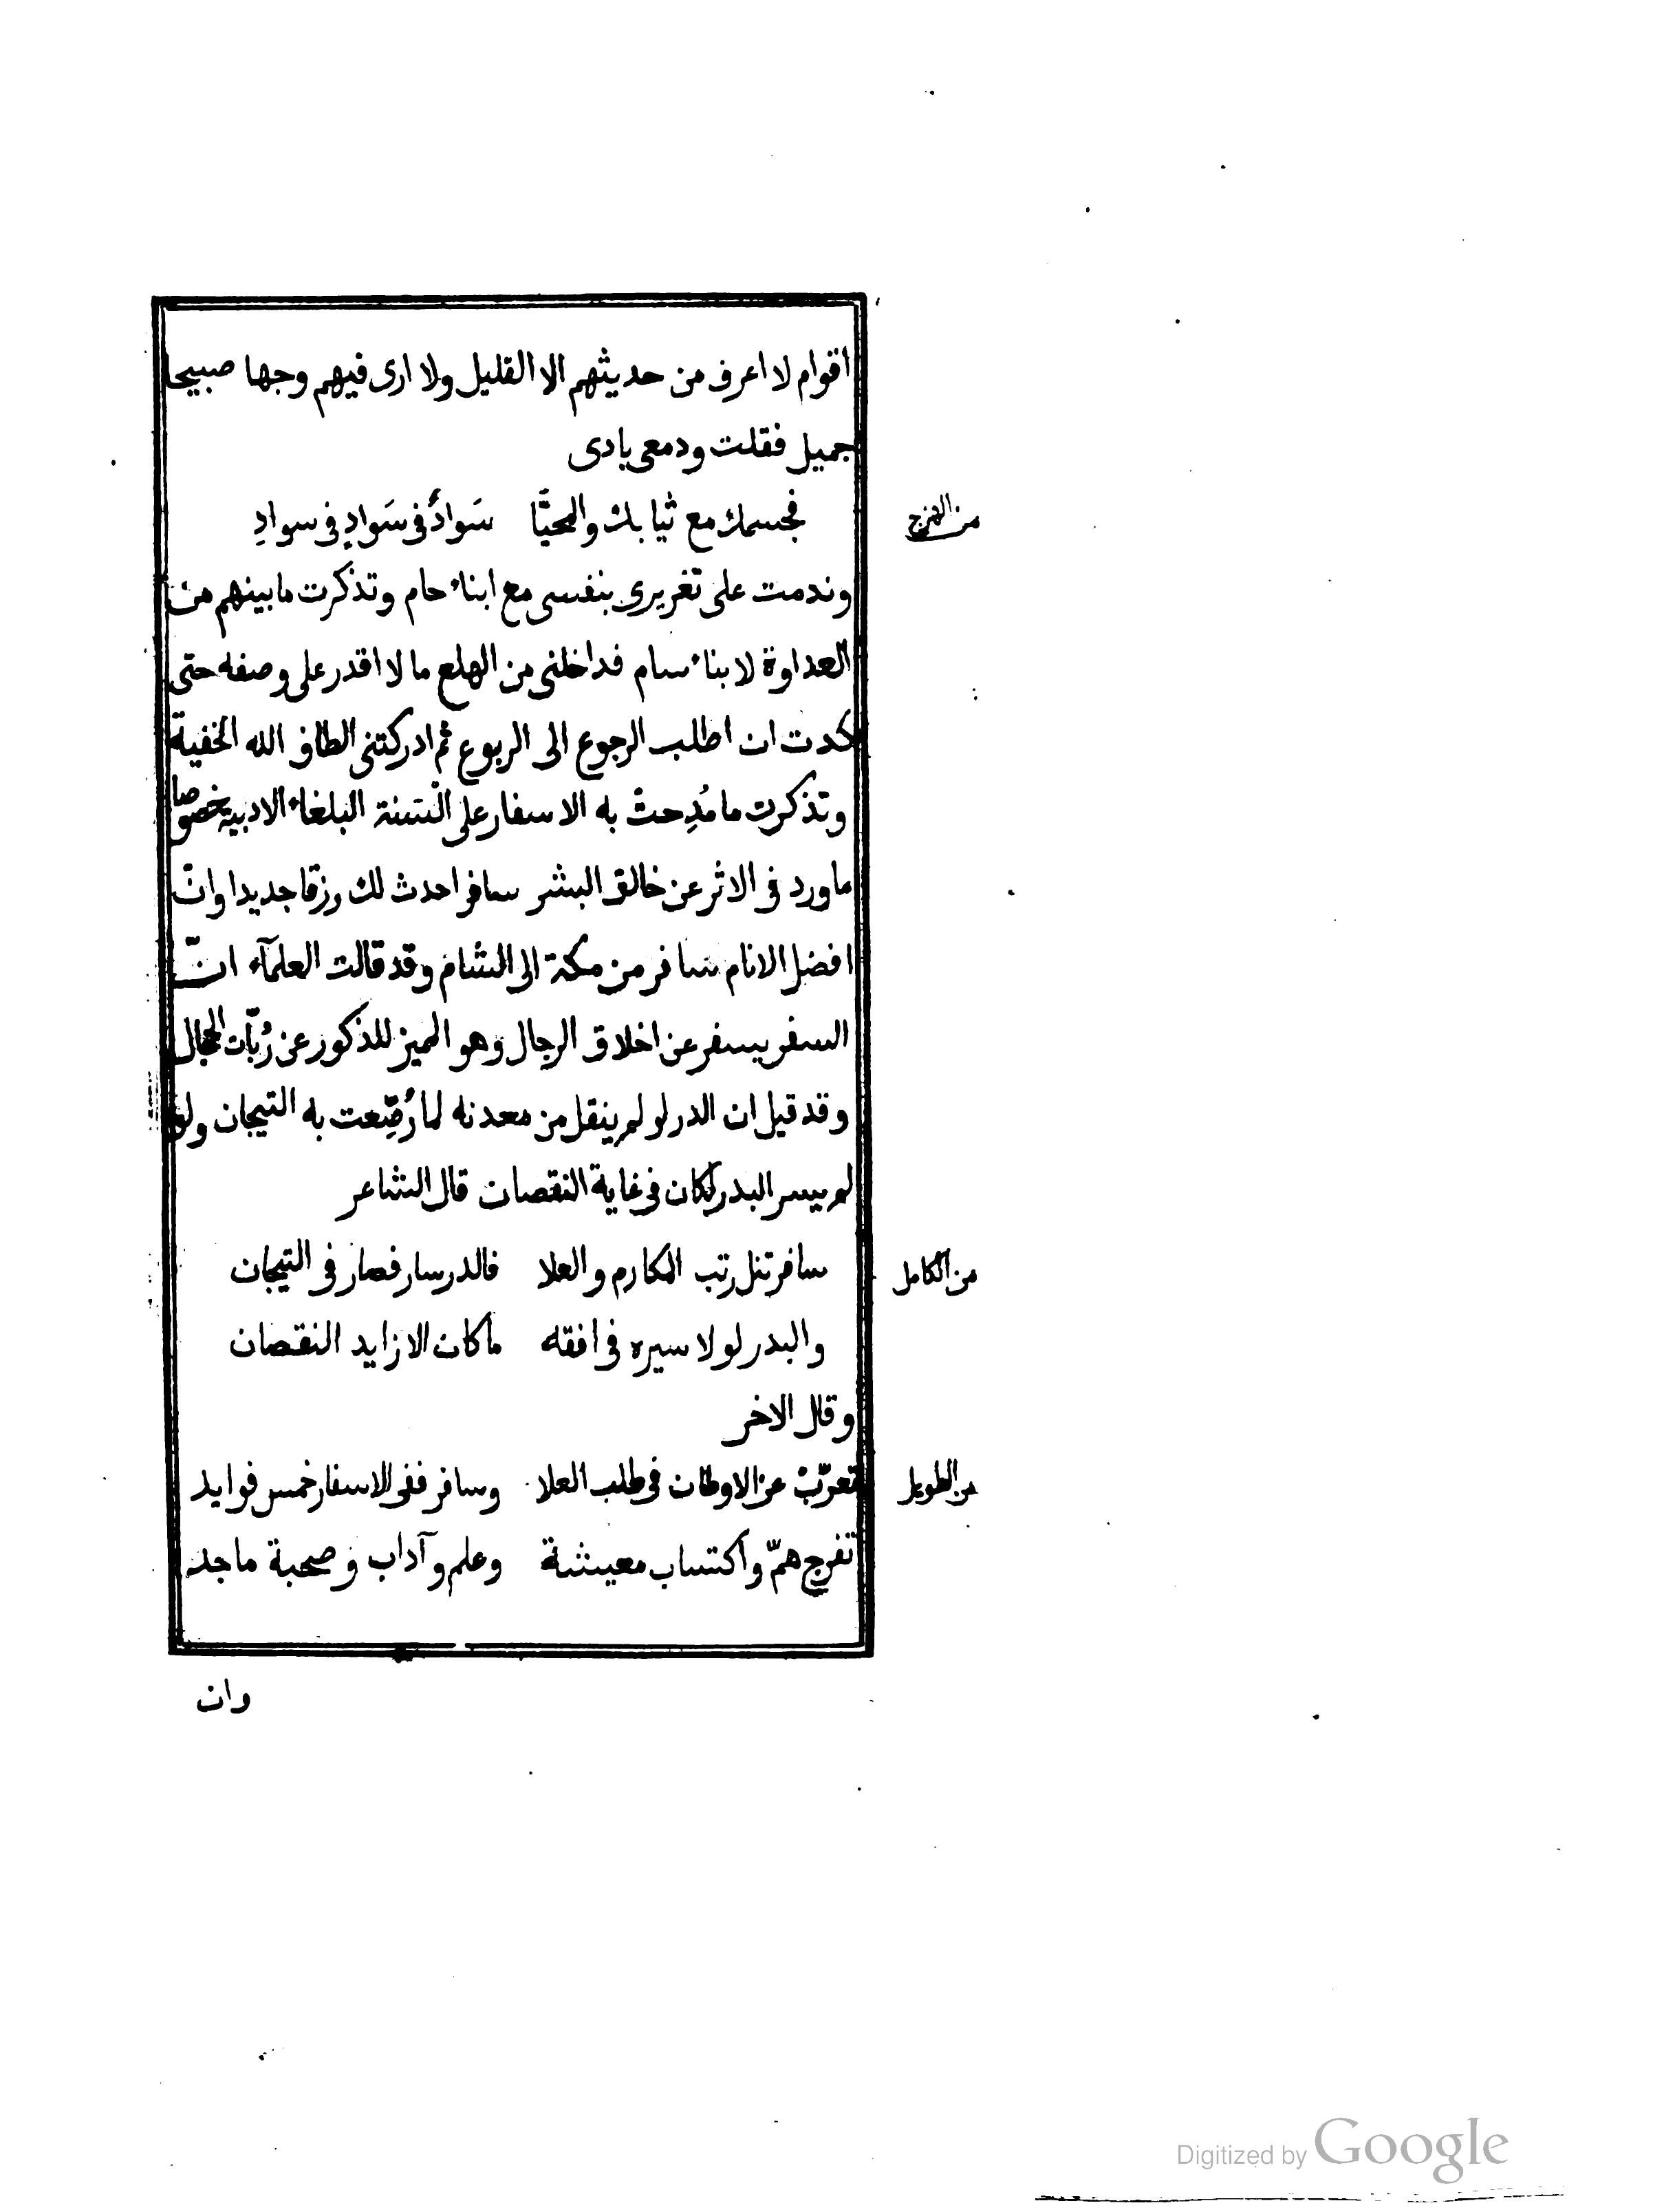 اقوام لا اعرف من حديثهم الا القليل ولا ارى فيهم وجها صبيحا
جميل فقلت ودمعى بادى
من الهزج
فجسمك مع ثيابك والمحيَّا سَوادٌ فى سَوادٍ فى سوادِ
وندمت على تغريرى بنفسى مع ابناء حام وتذكرت مابينهم من
العداوة لابناء سام فداخلنى من الهلع ما لا اقدر على وصفه حتى
كدت ان اطلب الرجوع الى الربوع ثم ادركتنى الطاف الله الخفية
وتذكرت ما مُدِحتْ به الاسفار على السنة البلغاء الادبية خصوصا
ماورد فى الاثر عن خالق البشر سافر احدث لك رزقا جديدا وانّ
افضل الانام سافر من مكة الى الشام وقد قالت العلمآء انّ
السفر يسفر عن اخلاق الرجال وهو المميز للذكور عن رُبّات الحجال
وقد قيل ان الدر لو لم ينقل من معدنه لما رُصِّعت به التيجان ولو
لم يسر البدر لكان فى غاية النقصان قال الشاعر
من الكامل
سافر تنل رتب المكارم والعلا فالدر سار فصار فى التيجان
والبدر لولا سيره فى افقه ماكان الا زايد النقصان
وقال الاخر
من الطويل
تغرّبْ عن الاوطان فى طلب العلا وسافر ففى الاسفار خمس فوايد
تفرج همّ واكتساب معيشة وعلم وآداب وصحبة ماجد
وان
Digitized by Google